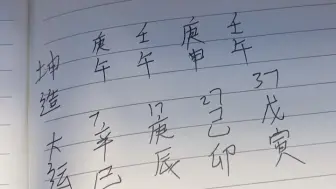 坤造 庚午 壬午 庚申 壬午
大运 7辛巳 17庚辰 27己卯 37戊寅